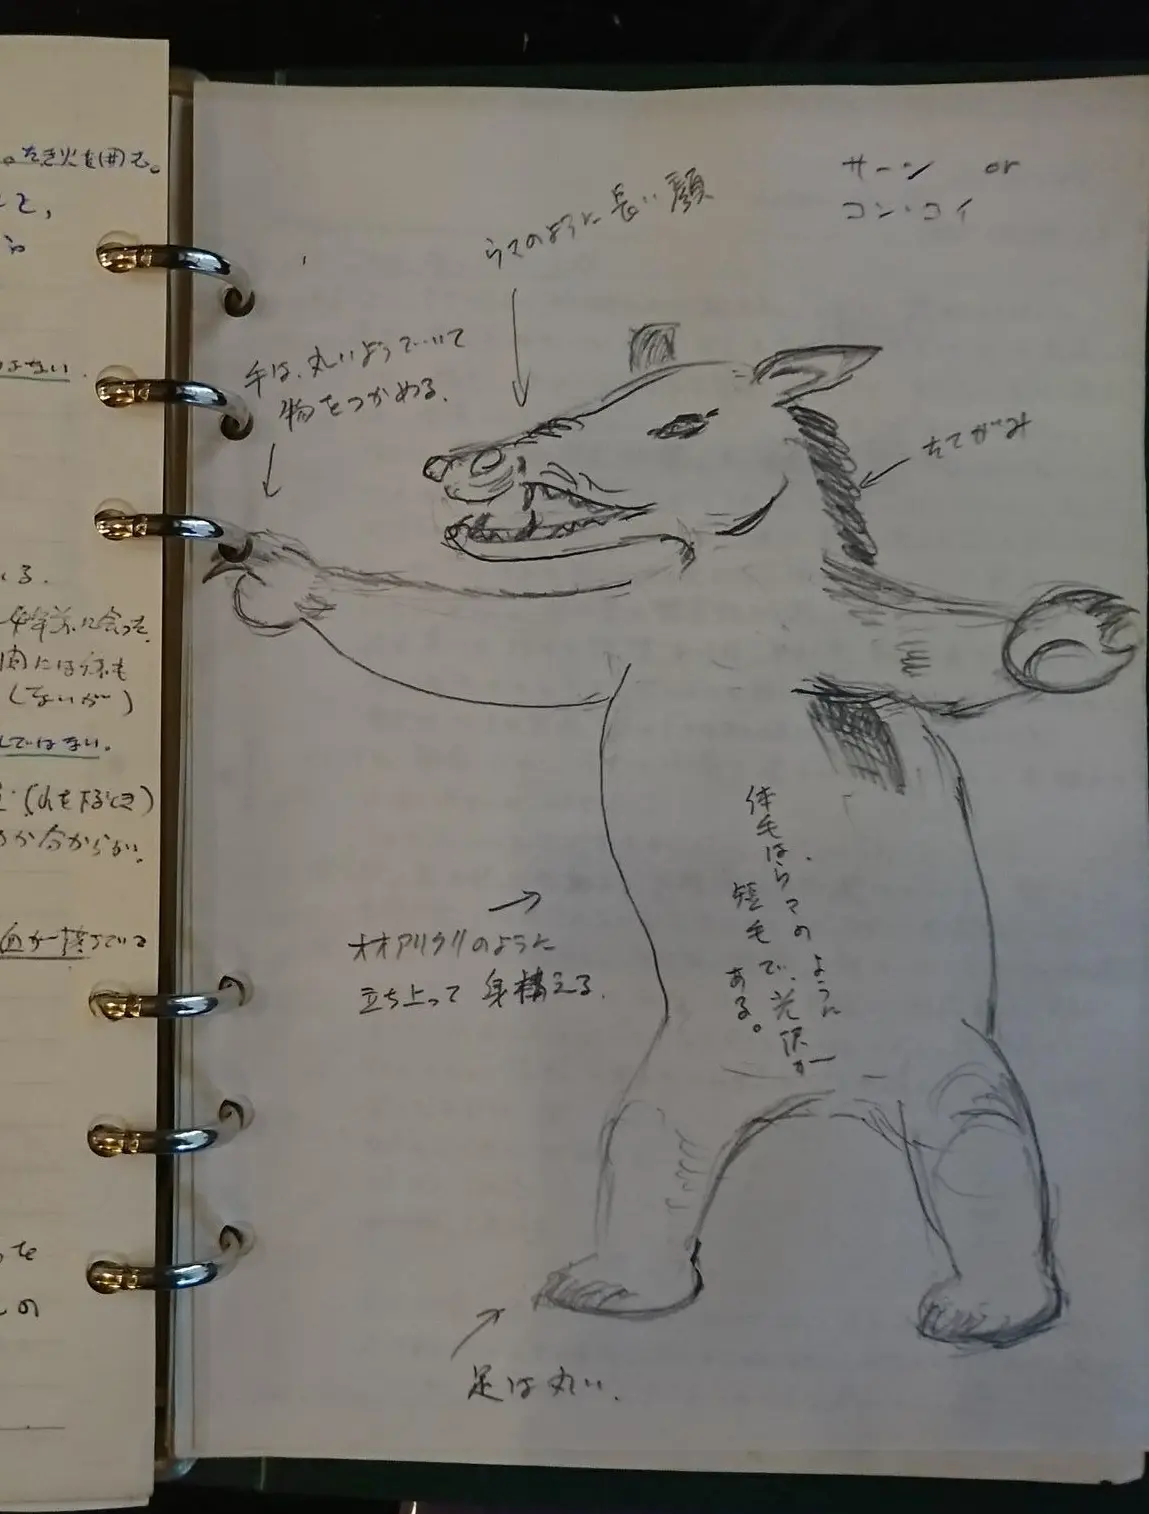 たき火を囲む。
と、
はない.
いる.
年前に会った.
肉には
(ないが)
ではない。
(山を下るとき)
か分からない。
を
の
サーン or
コン・コイ
うまのように長い顔
手は、丸いようでいて
物をつかめる.
たてがみ
体毛は、うまのように
短毛で、光沢が
ある。
オオアリクイのように
立ち上って身構える.
足は丸い.